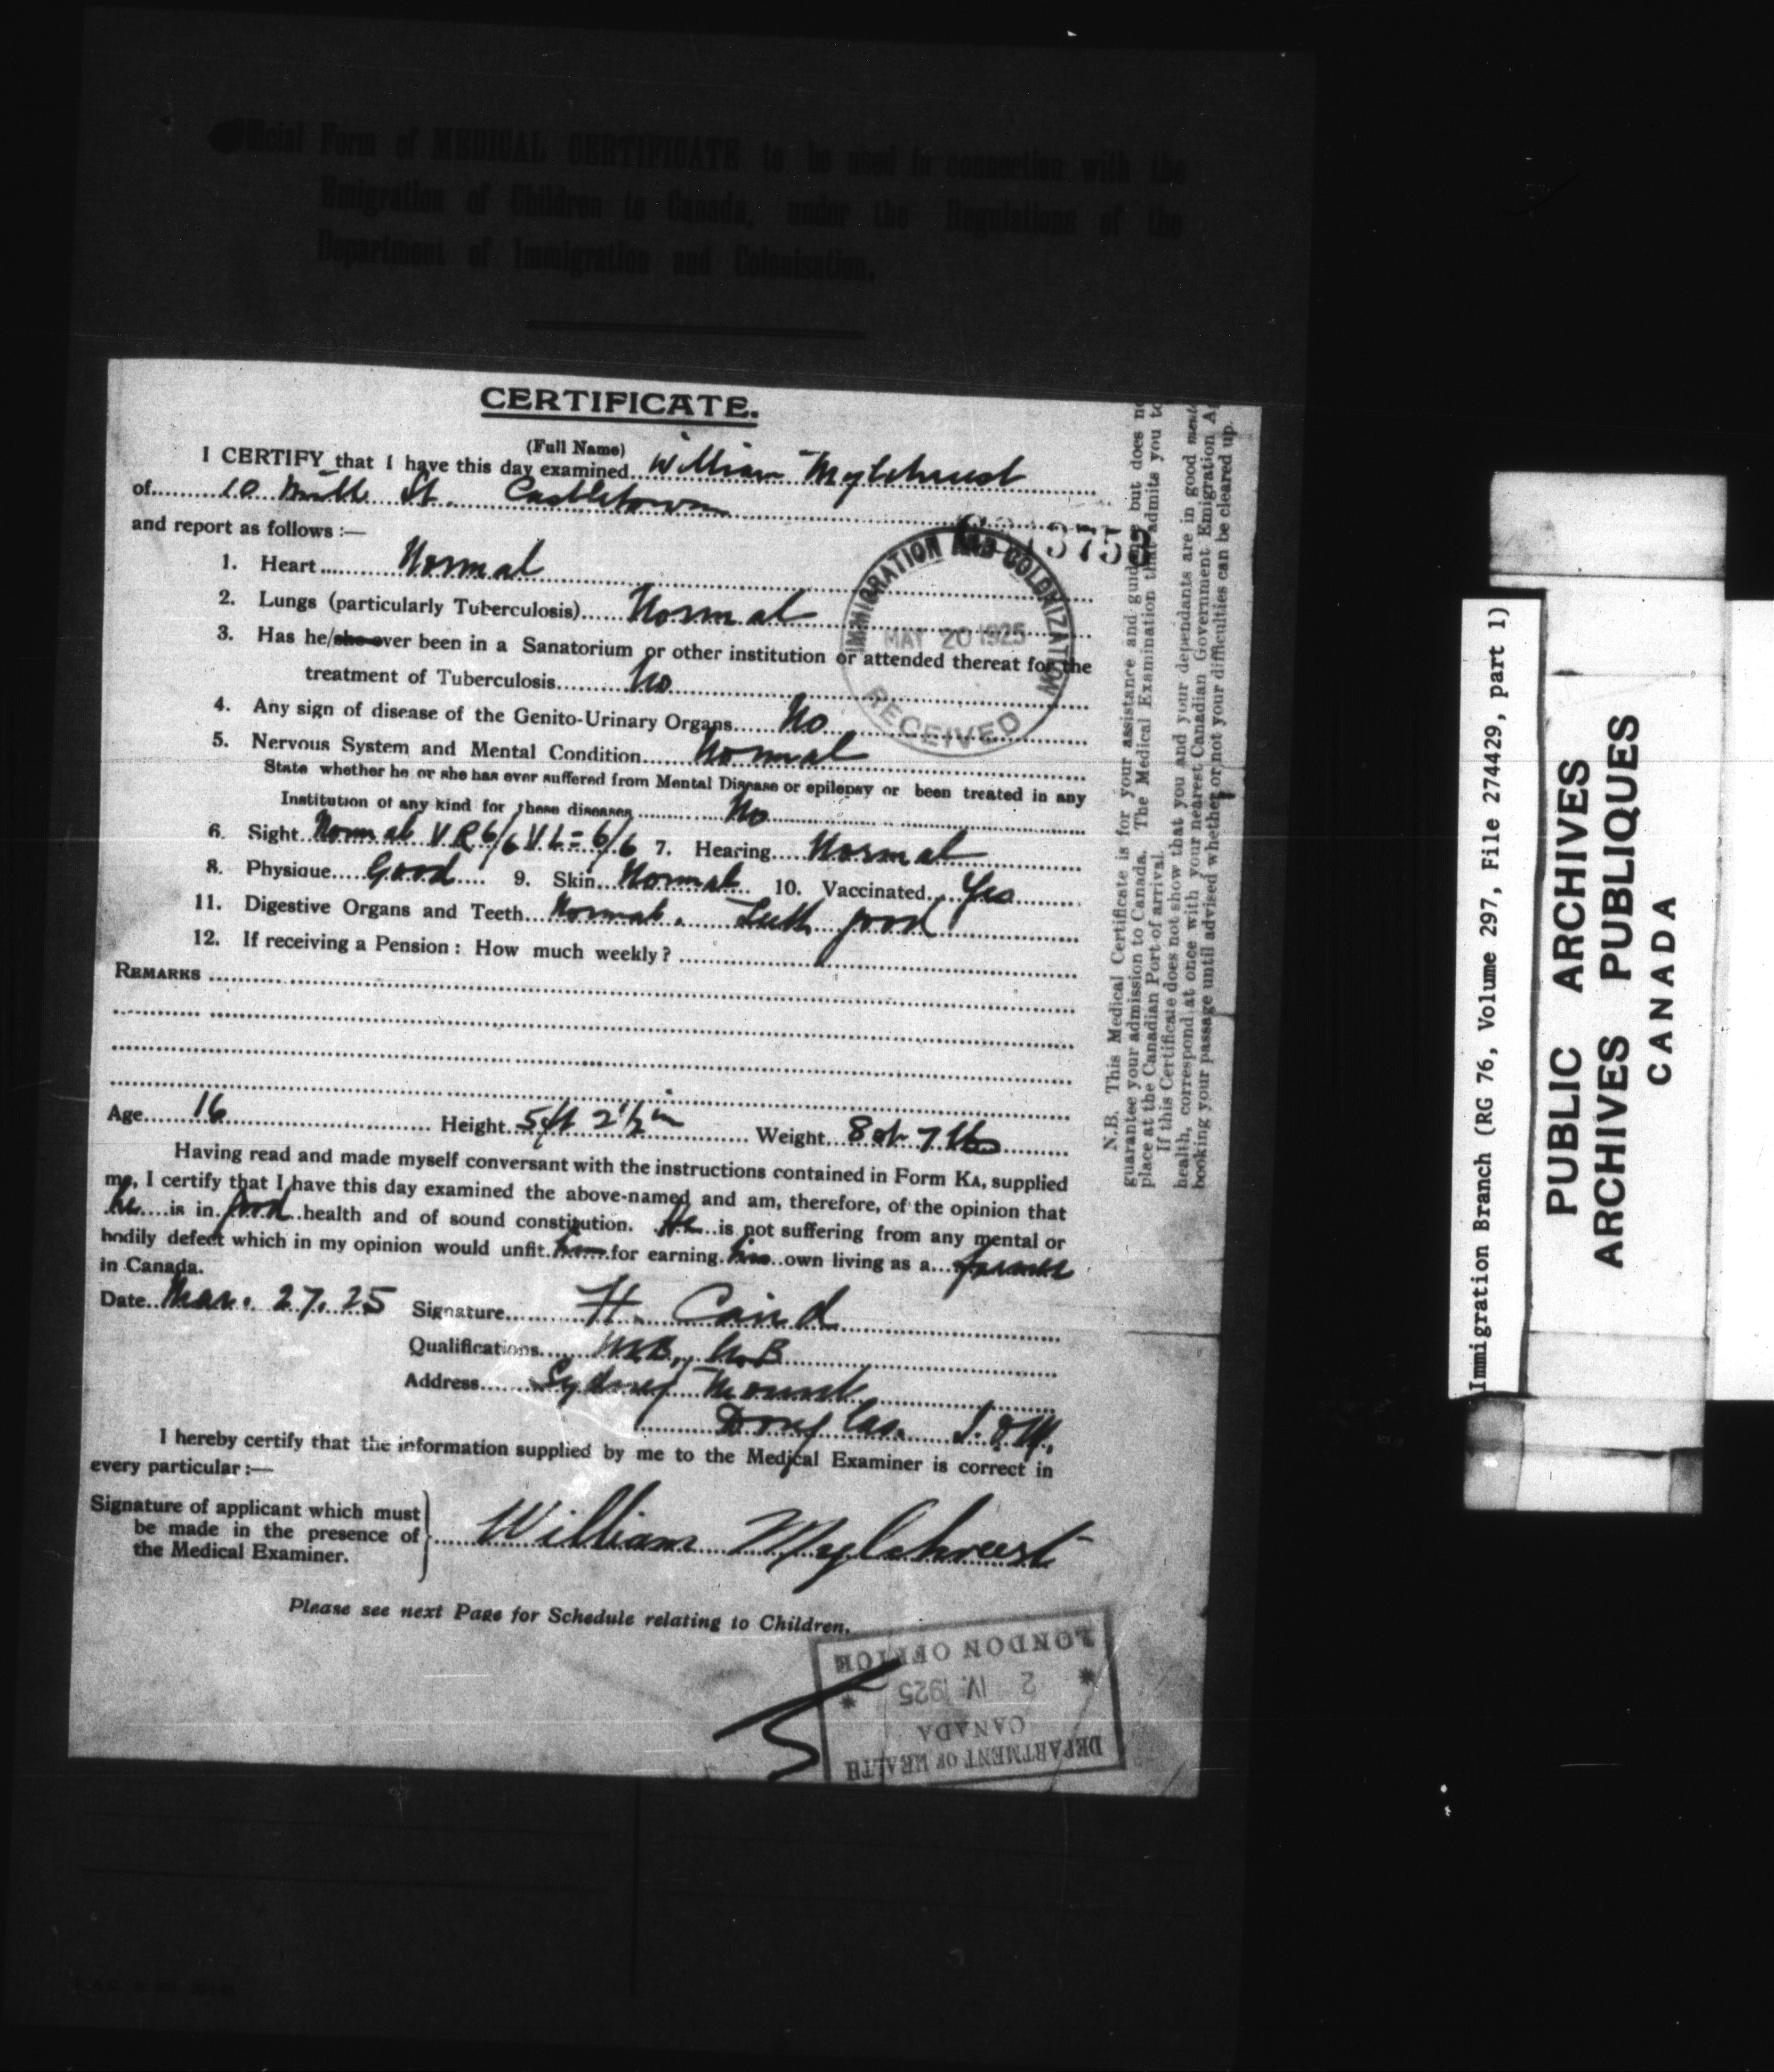 Official Form of MEDICAL CERTIFICATE to be used in connection with the
Emigration of Children to Canada, under the Regulations of the
Department of Immigration and Colonisation.
CERTIFICATE.
(Full Name)
I CERTIFY that I have this day examined William Mylchreest
of 10 St. Castletown
and report as follows :—
1. Heart Normal
2. Lungs (particularly Tuberculosis) Normal
3. Has he/she ever been in a Sanatorium or other institution or attended thereat for the
treatment of Tuberculosis No
4. Any sign of disease of the Genito-Urinary Organs No
5. Nervous System and Mental Condition Normal
State whether he or she has ever suffered from Mental Disease or epilepsy or been treated in any
Institution of any kind for these diseases No
6. Sight Normal V R 6/6 V L = 6/6 7. Hearing Normal
8. Physique Good 9. Skin Normal 10. Vaccinated Yes
11. Digestive Organs and Teeth Normal. Teeth good
12. If receiving a Pension : How much weekly ?
REMARKS
Age 16 Height 5ft 2½ in Weight 8 st 7 lbs
Having read and made myself conversant with the instructions contained in Form KA, supplied
me, I certify that I have this day examined the above-named and am, therefore, of the opinion that
he is in good health and of sound constitution. He is not suffering from any mental or
bodily defect which in my opinion would unfit him for earning his own living as a farmer
in Canada.
Date Mar. 27. 25 Signature H. Caird
Qualifications M.B., Ch.B
Address Sydney Mount
Douglas. I.O.M.
I hereby certify that the information supplied by me to the Medical Examiner is correct in
every particular :—
Signature of applicant which must
be made in the presence of
the Medical Examiner.
William Mylchreest
Please see next Page for Schedule relating to Children.
IMMIGRATION AND COLONIZATION
MAY 20 1925
RECEIVED
DEPARTMENT OF HEALTH
CANADA
2 IV. 1925
LONDON OFFICE
N.B. This Medical Certificate is for your assistance and guidance but does
guarantee your admission to Canada. The Medical Examination that admits you to
place at the Canadian Port of arrival.
If this Certificate does not show that you and your dependants are in good
health, correspond at once with your nearest Canadian Government Emigration
booking your passage until advised whether or not your difficulties can be cleared up.
Immigration Branch (RG 76, Volume 297, File 274429, part 1)
PUBLIC ARCHIVES
ARCHIVES PUBLIQUES
CANADA